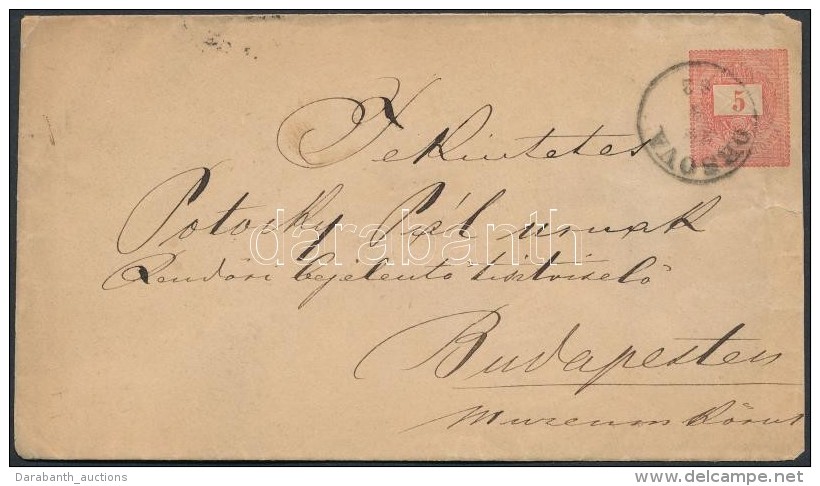 5
ORSOVA
Tekintetes
Potocky Pál urnak
Rendőri bejelentő tisztviselő
Budapesten
Museum Körut
darabanth
Darabanth_auctions
delcampe.net